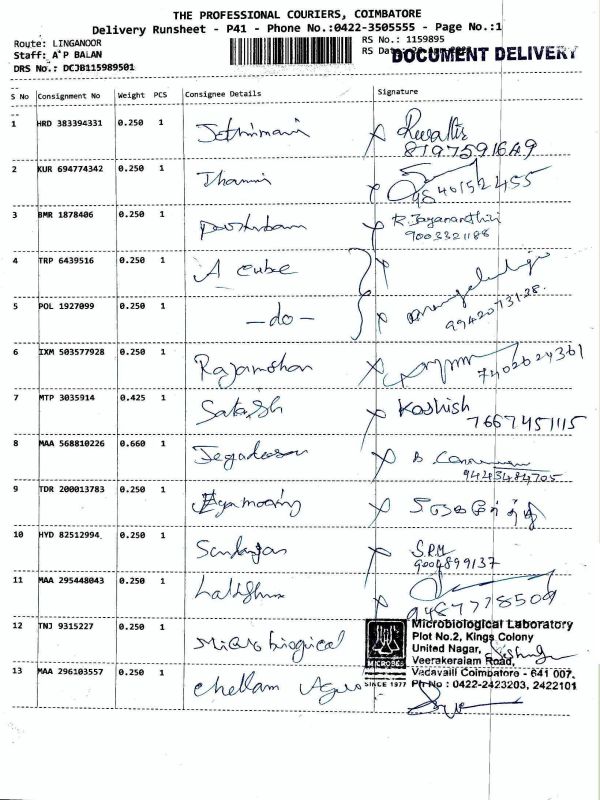 THE PROFESSIONAL COURIERS, COIMBATORE
Delivery Runsheet - P41 - Phone No.:0422-3505555 - Page No.:1
Route: LINGANOOR RS No.: 1159895
Staff: A P BALAN RS Date: DOCUMENT DELIVERY
DRS No.: DCJB115989501
S No Consignment No Weight PCS Consignee Details Signature
1 HRD 383394331 0.250 1
8197591649
2 KUR 694774342 0.250 1 Thamni
9840152455
3 BMR 1878406 0.250 1 R. Jayananthini
9003321188
4 TRP 6439516 0.250 1 A cube
5 POL 1927099 0.250 1 -do-
9942073128.
6 IXM 503577928 0.250 1 Rajamohan
7402624361
7 MTP 3035914 0.425 1 Satash Kashish
7667451115
8 MAA 568810226 0.660 1 Jegadeesan
94423484705
9 TDR 200013783 0.250 1
10 HYD 82512994 0.250 1 S.P.M
9004899137
11 MAA 295448043 0.250 1
9487778509
12 TNJ 9315227 0.250 1 Microbiogical
Microbiological Laboratory
Plot No.2, Kings Colony
United Nagar,
Veerakeralam Road,
MICROBES
Vadavalli Coimbatore - 641 007.
SINCE 1977 Ph No : 0422-2423203, 2422101
13 MAA 296103557 0.250 1 Chellam Agro